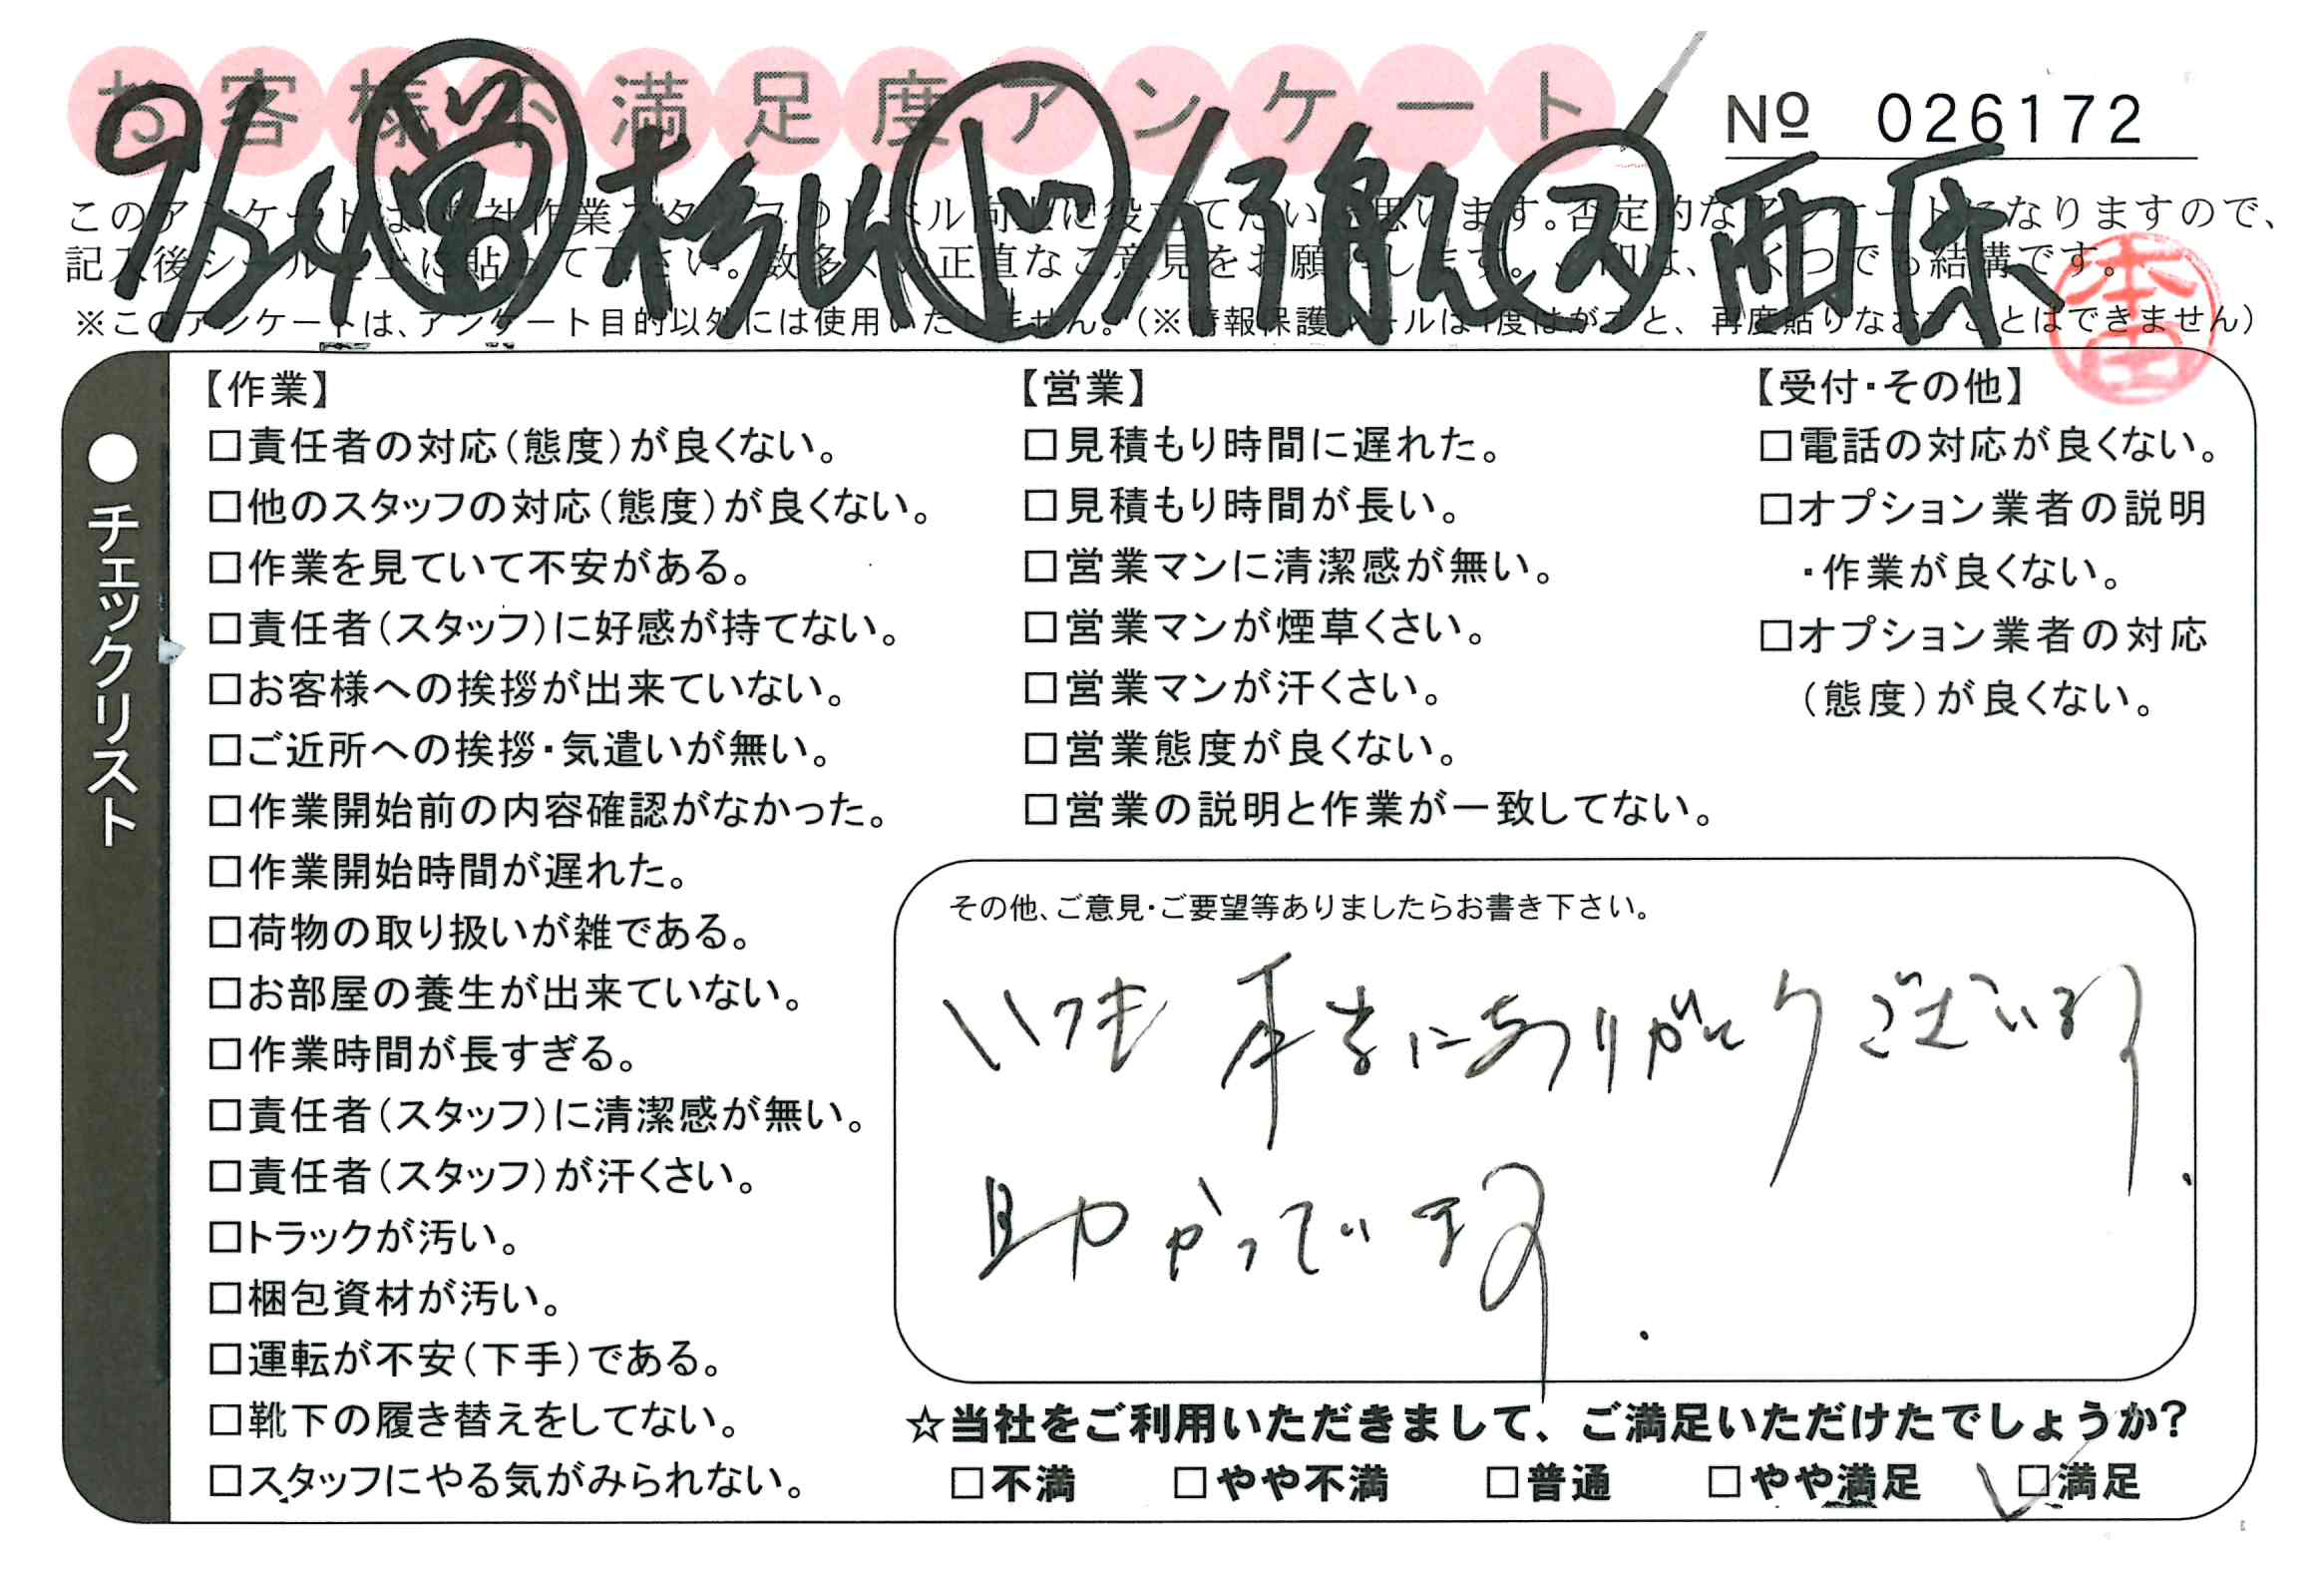 お客様不満足度アンケート
№ 026172
9/24 営 杉山 リ 行般 ス 西原
このアンケートは、当社作業スタッフのレベル向上に役立てたいと思います。否定的なアンケートになりますので、
記入後シールを上に貼って下さい。数多くの正直なご意見をお願いします。✓印は、いくつでも結構です。
※このアンケートは、アンケート目的以外には使用いたしません。（※情報保護シールは1度はがすと、再度貼りなおすことはできません）
本田
●チェックリスト
【作業】
□責任者の対応（態度）が良くない。
□他のスタッフの対応（態度）が良くない。
□作業を見ていて不安がある。
□責任者（スタッフ）に好感が持てない。
□お客様への挨拶が出来ていない。
□ご近所への挨拶・気遣いが無い。
□作業開始前の内容確認がなかった。
□作業開始時間が遅れた。
□荷物の取り扱いが雑である。
□お部屋の養生が出来ていない。
□作業時間が長すぎる。
□責任者（スタッフ）に清潔感が無い。
□責任者（スタッフ）が汗くさい。
□トラックが汚い。
□梱包資材が汚い。
□運転が不安（下手）である。
□靴下の履き替えをしてない。
□スタッフにやる気がみられない。
【営業】
□見積もり時間に遅れた。
□見積もり時間が長い。
□営業マンに清潔感が無い。
□営業マンが煙草くさい。
□営業マンが汗くさい。
□営業態度が良くない。
□営業の説明と作業が一致してない。
【受付・その他】
□電話の対応が良くない。
□オプション業者の説明
・作業が良くない。
□オプション業者の対応
（態度）が良くない。
その他、ご意見・ご要望等ありましたらお書き下さい。
いつも 本当にありがとうございます.
助かっています.
☆当社をご利用いただきまして、ご満足いただけたでしょうか?
□不満 □やや不満 □普通 □やや満足 ☑満足